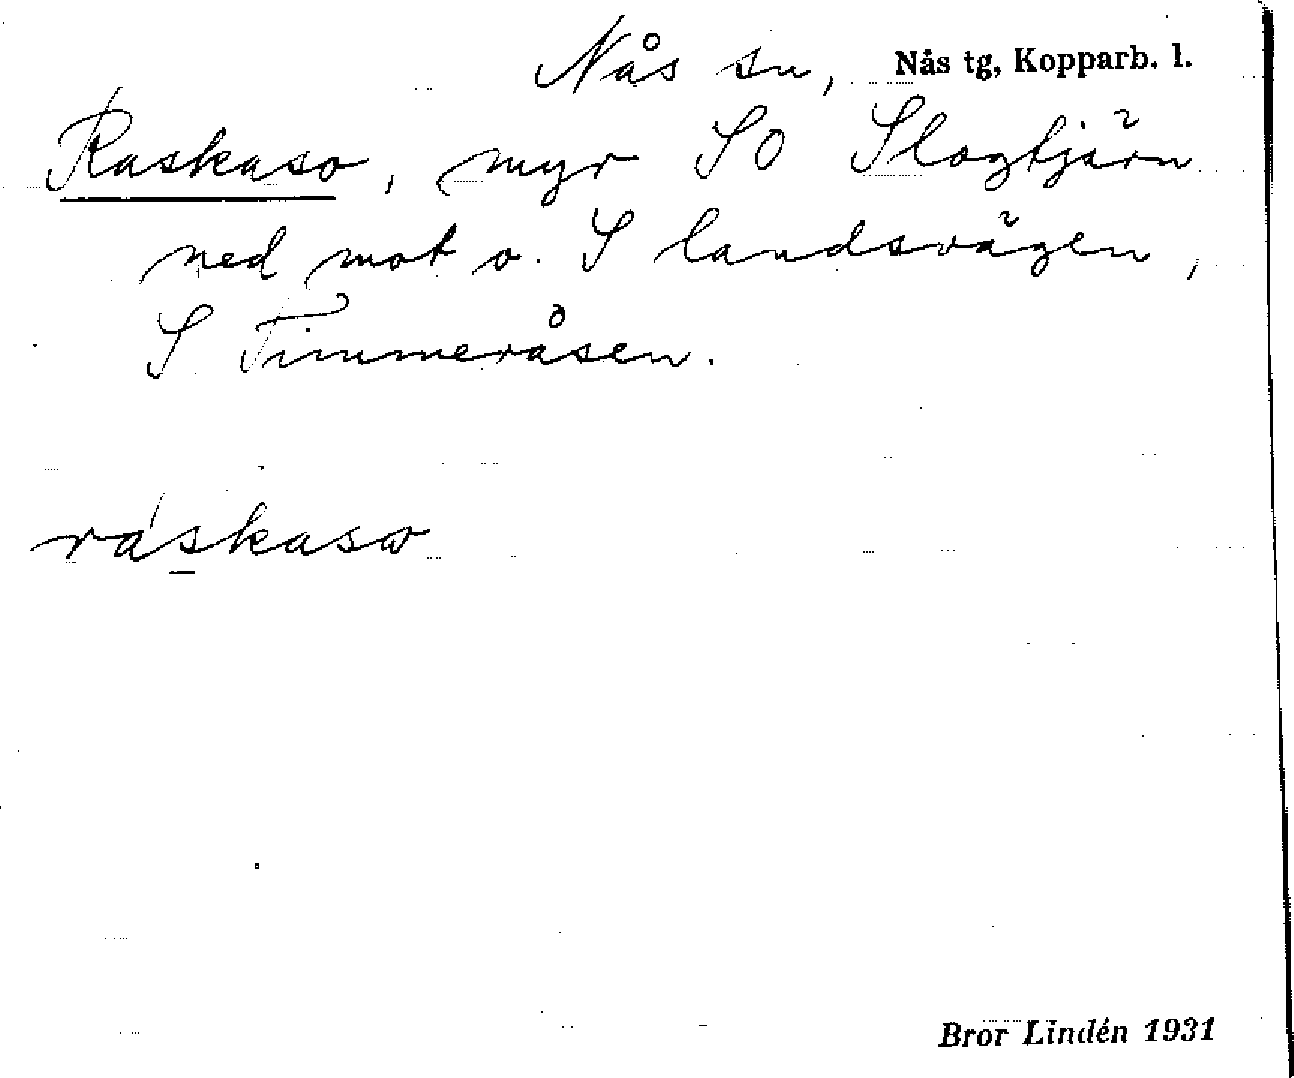 Nås sn, Nås tg, Kopparb. l.
Raskaso, myr SO Slogtjärn
ned mot o. S landsvägen,
S Timmeråsen.
ráskasω
Bror Lindén 1931